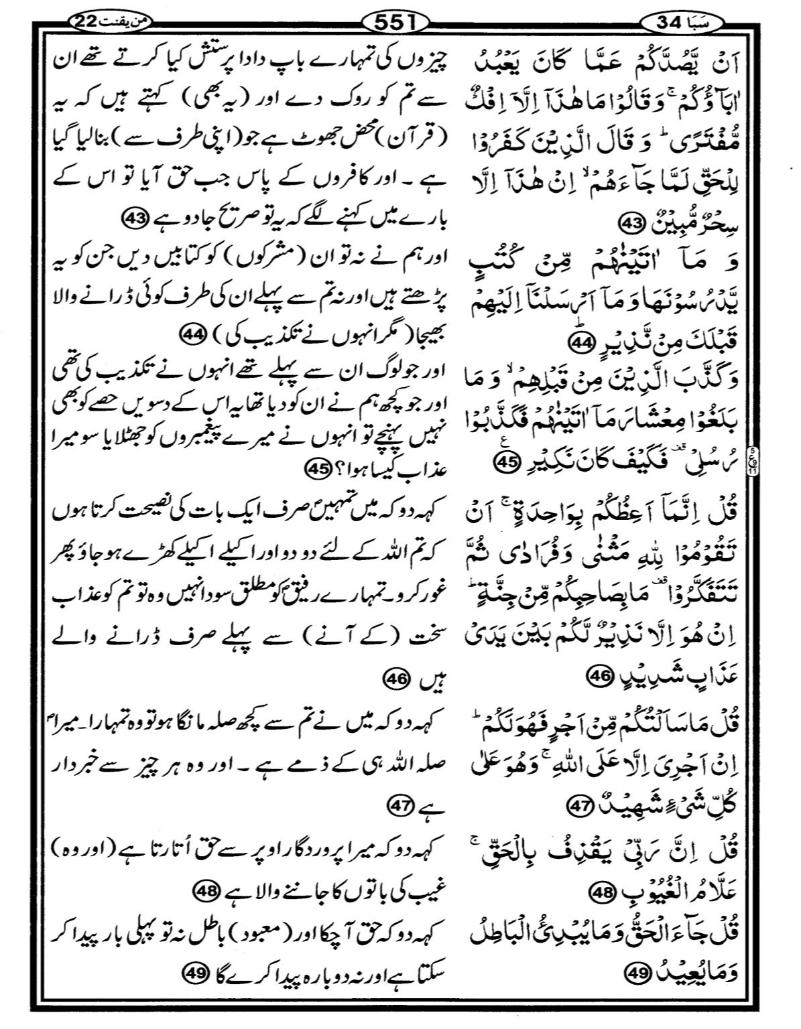 سَبَا 34
551
من یقنت 22
اَنۡ یَّصُدَّکُمۡ عَمَّا کَانَ یَعۡبُدُ
اٰبَآؤُکُمۡ ۚ وَ قَالُوۡا مَا ہٰذَاۤ اِلَّاۤ اِفۡکٌ
مُّفۡتَرًی ؕ وَ قَالَ الَّذِیۡنَ کَفَرُوۡا
لِلۡحَقِّ لَمَّا جَآءَہُمۡ ۙ اِنۡ ہٰذَاۤ اِلَّا
سِحۡرٌ مُّبِیۡنٌ 43
وَ مَاۤ اٰتَیۡنٰہُمۡ مِّنۡ کُتُبٍ
یَّدۡرُسُوۡنَہَا وَ مَاۤ اَرۡسَلۡنَاۤ اِلَیۡہِمۡ
قَبۡلَکَ مِنۡ نَّذِیۡرٍ ؕ 44
وَ کَذَّبَ الَّذِیۡنَ مِنۡ قَبۡلِہِمۡ ۙ وَ مَا
بَلَغُوۡا مِعۡشَارَ مَاۤ اٰتَیۡنٰہُمۡ فَکَذَّبُوۡا
رُسُلِیۡ ۟ فَکَیۡفَ کَانَ نَکِیۡرِ 45
قُلۡ اِنَّمَاۤ اَعِظُکُمۡ بِوَاحِدَۃٍ ۚ اَنۡ
تَقُوۡمُوۡا لِلّٰہِ مَثۡنٰی وَ فُرَادٰی ثُمَّ
تَتَفَکَّرُوۡا ۟ مَا بِصَاحِبِکُمۡ مِّنۡ جِنَّۃٍ ؕ
اِنۡ ہُوَ اِلَّا نَذِیۡرٌ لَّکُمۡ بَیۡنَ یَدَیۡ
عَذَابٍ شَدِیۡدٍ 46
قُلۡ مَا سَاَلۡتُکُمۡ مِّنۡ اَجۡرٍ فَہُوَ لَکُمۡ ؕ
اِنۡ اَجۡرِیَ اِلَّا عَلَی اللّٰہِ ۚ وَ ہُوَ عَلٰی
کُلِّ شَیۡءٍ شَہِیۡدٌ 47
قُلۡ اِنَّ رَبِّیۡ یَقۡذِفُ بِالۡحَقِّ ۚ
عَلَّامُ الۡغُیُوۡبِ 48
قُلۡ جَآءَ الۡحَقُّ وَ مَا یُبۡدِئُ الۡبَاطِلُ
وَ مَا یُعِیۡدُ 49
چیزوں کی تمہارے باپ دادا پرستش کیا کرتے تھے ان
سے تم کو روک دے اور (یہ بھی) کہتے ہیں کہ یہ
(قرآن) محض جھوٹ ہے جو (اپنی طرف سے) بنالیا گیا
ہے ۔ اور کافروں کے پاس جب حق آیا تو اس کے
بارے میں کہنے لگے کہ یہ تو صریح جادو ہے 43
اور ہم نے نہ تو ان (مشرکوں) کو کتابیں دیں جن کو یہ
پڑھتے ہیں اور نہ تم سے پہلے ان کی طرف کوئی ڈرانے والا
بھیجا (مگر انہوں نے تکذیب کی) 44
اور جو لوگ ان سے پہلے تھے انہوں نے تکذیب کی تھی
اور جو کچھ ہم نے ان کو دیا تھا یہ اس کے دسویں حصے کو بھی
نہیں پہنچے تو انہوں نے میرے پیغمبروں کو جھٹلایا سو میرا
عذاب کیسا ہوا ؟ 45
کہہ دو کہ میں تمہیں صرف ایک بات کی نصیحت کرتا ہوں
کہ تم اللہ کے لئے دو دو اور اکیلے اکیلے کھڑے ہو جاؤ پھر
غور کرو۔ تمہارے رفیق کو مطلق سودا نہیں وہ تو تم کو عذاب
سخت (کے آنے) سے پہلے صرف ڈرانے والے
ہیں 46
کہہ دو کہ میں نے تم سے کچھ صلہ مانگا ہو تو وہ تمہارا۔ میرا
صلہ اللہ ہی کے ذمے ہے ۔ اور وہ ہر چیز سے خبردار
ہے 47
کہہ دو کہ میرا پروردگار اوپر سے حق اُتارتا ہے (اور وہ)
غیب کی باتوں کا جاننے والا ہے 48
کہہ دو کہ حق آ چکا اور (معبود) باطل نہ تو پہلی بار پیدا کر
سکتا ہے اور نہ دوبارہ پیدا کرے گا 49